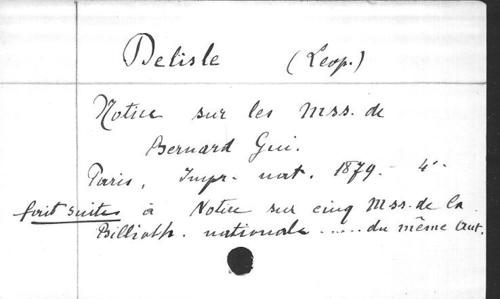 Delisle (Leop.)
Notice sur les Mss. de
Bernard Gui.
Paris, Impr. nat. 1879. - 4°.
fait suite à Notice sur cinq Mss. de la
Billioth. nationale ...... du même Aut.